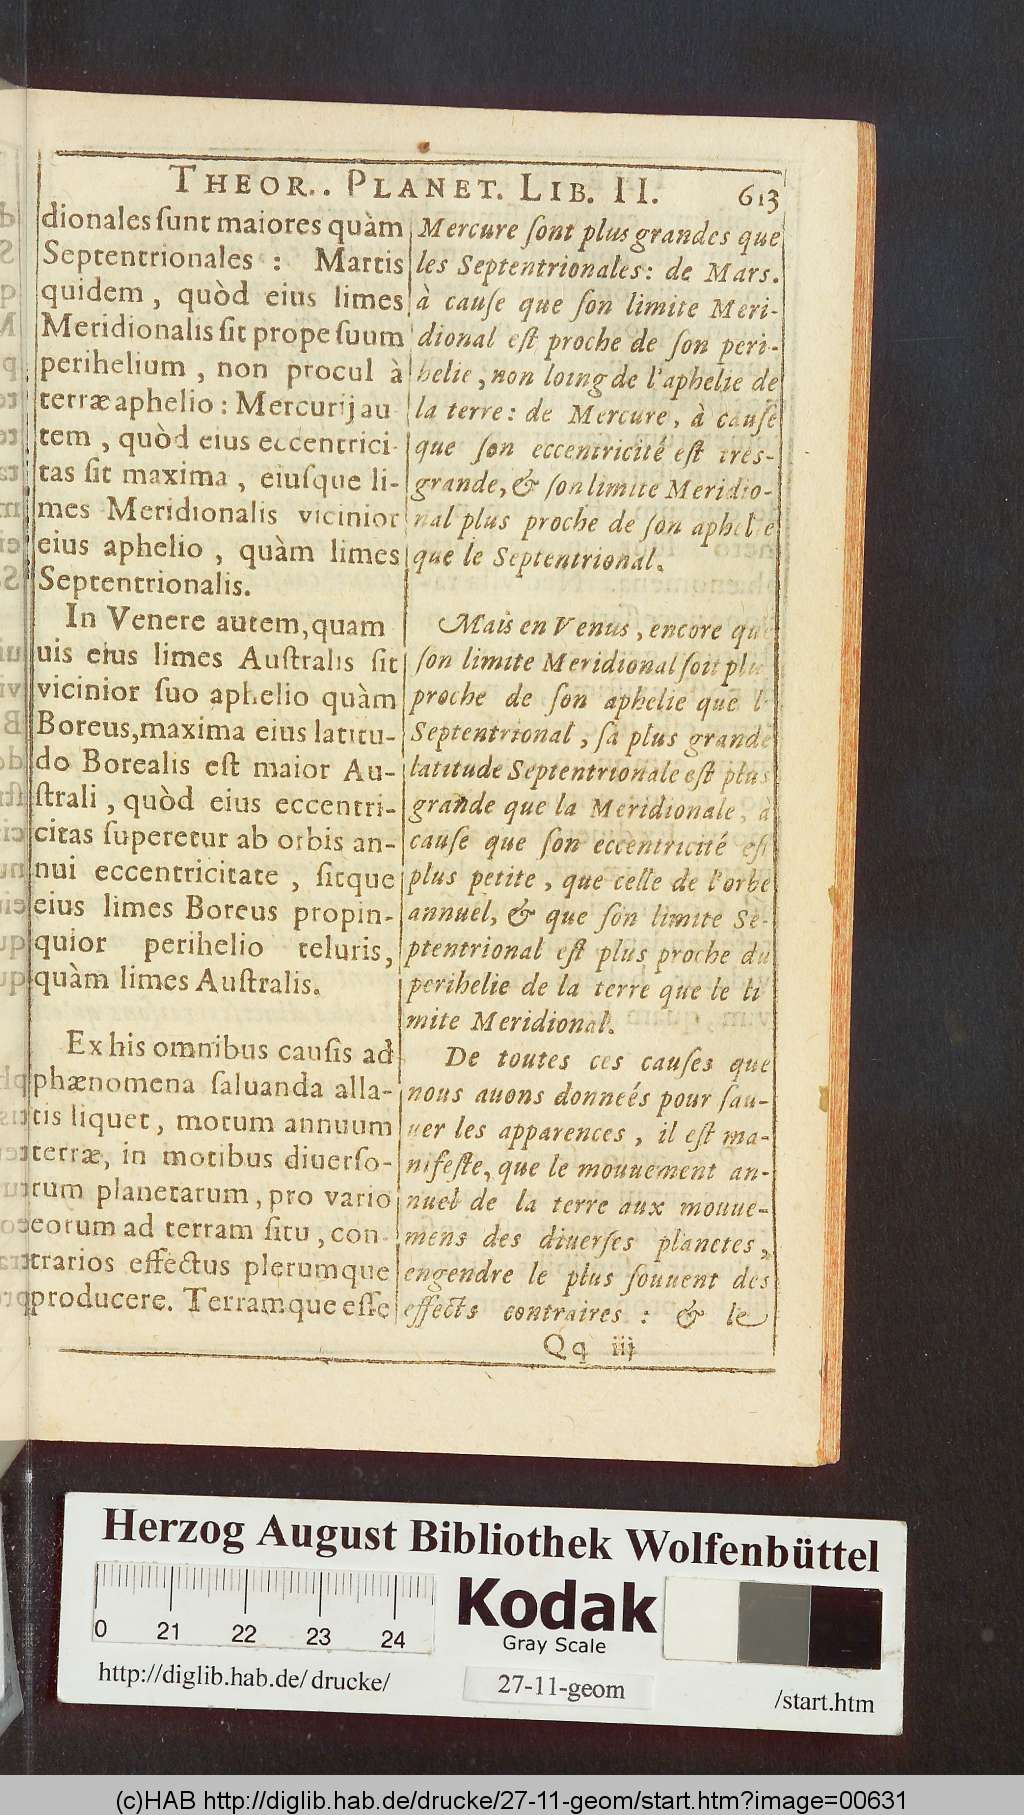 THEOR.. PLANET. LIB. II. 613
dionales ſunt maiores quàm
Septentrionales : Martis
quidem, quòd eius limes
Meridionalis ſit prope ſuum
perihelium, non procul à
terræ aphelio : Mercurij au
tem, quòd eius eccentrici-
tas ſit maxima, eiuſque li-
mes Meridionalis vicinior
eius aphelio, quàm limes
Septentrionalis.
In Venere autem, quam
uis eius limes Auſtralis ſit
vicinior ſuo aphelio quàm
Boreus, maxima eius latitu-
do Borealis eſt maior Au-
ſtrali, quòd eius eccentri-
citas ſuperetur ab orbis an-
nui eccentricitate, ſitque
eius limes Boreus propin-
quior perihelio teluris,
quàm limes Auſtralis.
Ex his omnibus cauſis ad
phænomena ſaluanda alla-
tis liquet, motum annuum
terræ, in motibus diuerſo-
rum planetarum, pro vario
eorum ad terram ſitu, con
trarios effectus plerumque
producere. Terramque eſſe
Mercure ſont plus grandes que
les Septentrionales : de Mars.
à cauſe que ſon limite Meri-
dional eſt proche de ſon peri-
helie, non loing de l'aphelie de
la terre : de Mercure, à cauſe
que ſon eccentricité eſt tres-
grande, & ſon limite Meridio-
nal plus proche de ſon aphelie
que le Septentrional.
Mais en Venus, encore que
ſon limite Meridional ſoit plu
proche de ſon aphelie que l
Septentrional, ſa plus grande
latitude Septentrionale eſt plus
grande que la Meridionale, à
cauſe que ſon eccentricité eſt
plus petite, que celle de l'orbe
annuel, & que ſon limite Se-
ptentrional eſt plus proche du
perihelie de la terre que le li
mite Meridional.
De toutes ces cauſes que
nous auons donneés pour ſau-
uer les apparences, il eſt ma-
nifeſte, que le mouuement an-
nuel de la terre aux mouue-
mens des diuerſes planetes,
engendre le plus ſouuent des
effects contraires : & le
Qq iij
Herzog August Bibliothek Wolfenbüttel
0 21 22 23 24
Kodak
Gray Scale
http://diglib.hab.de/drucke/ 27-11-geom /start.htm
(c)HAB http://diglib.hab.de/drucke/27-11-geom/start.htm?image=00631